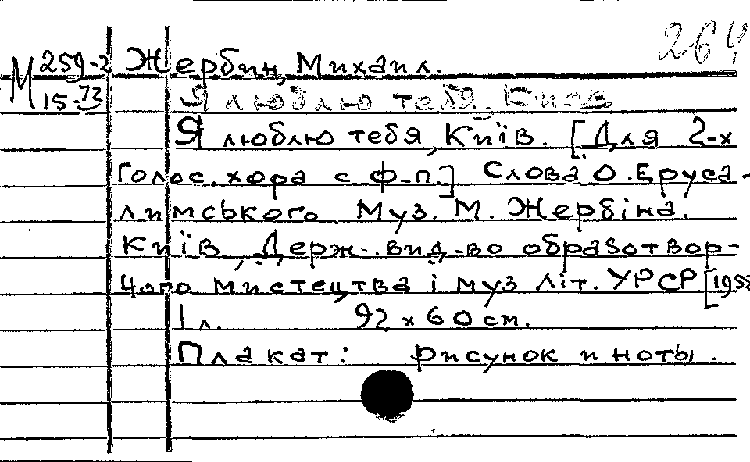 264
М 259-2 Жербин, Михаил.
15-73 Я люблю тебя, Киев
Я люблю тебя, Київ. [Для 2-х
голос. хора с ф-п.] Слова О. Еруса-
лимського Муз. М. Жербіна.
Київ, Держ. вид-во образотвор-
чого мистецтва і муз літ. УРСР [195
1 л. 92 х 60 см.
Плакат: рисунок и ноты.